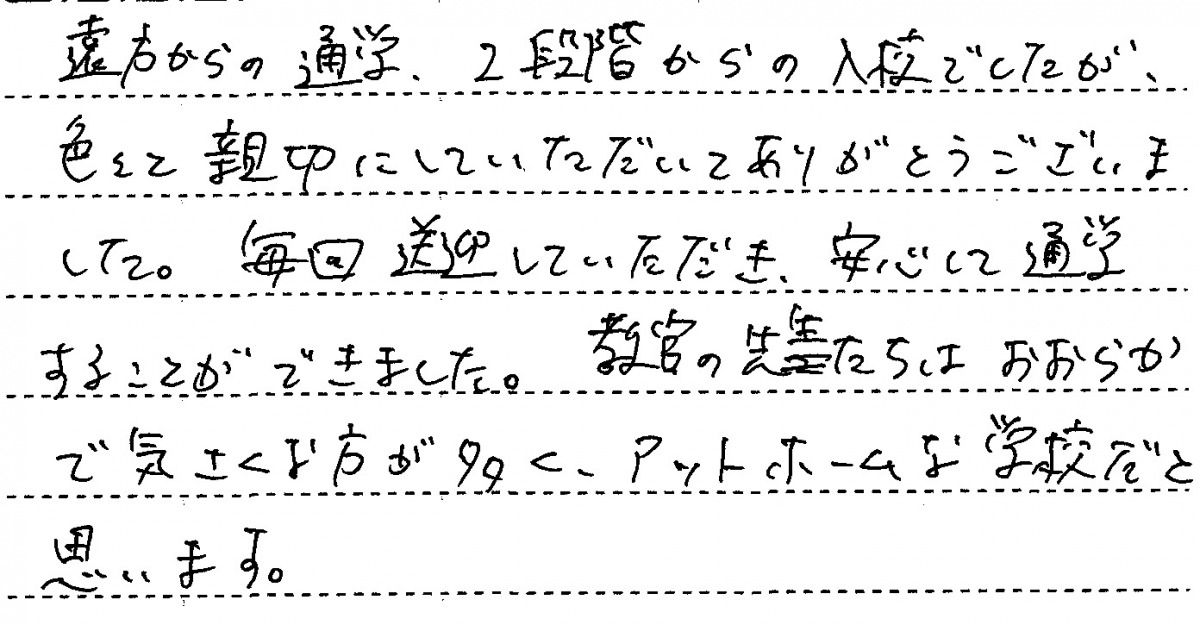 遠方からの通学、2段階からの入校でしたが、
色々と親切にしていただいてありがとうございま
した。毎回送迎していただき、安心して通学
することができました。教官の先生たちはおおらか
で気さくな方が多く、アットホームな学校だと
思います。